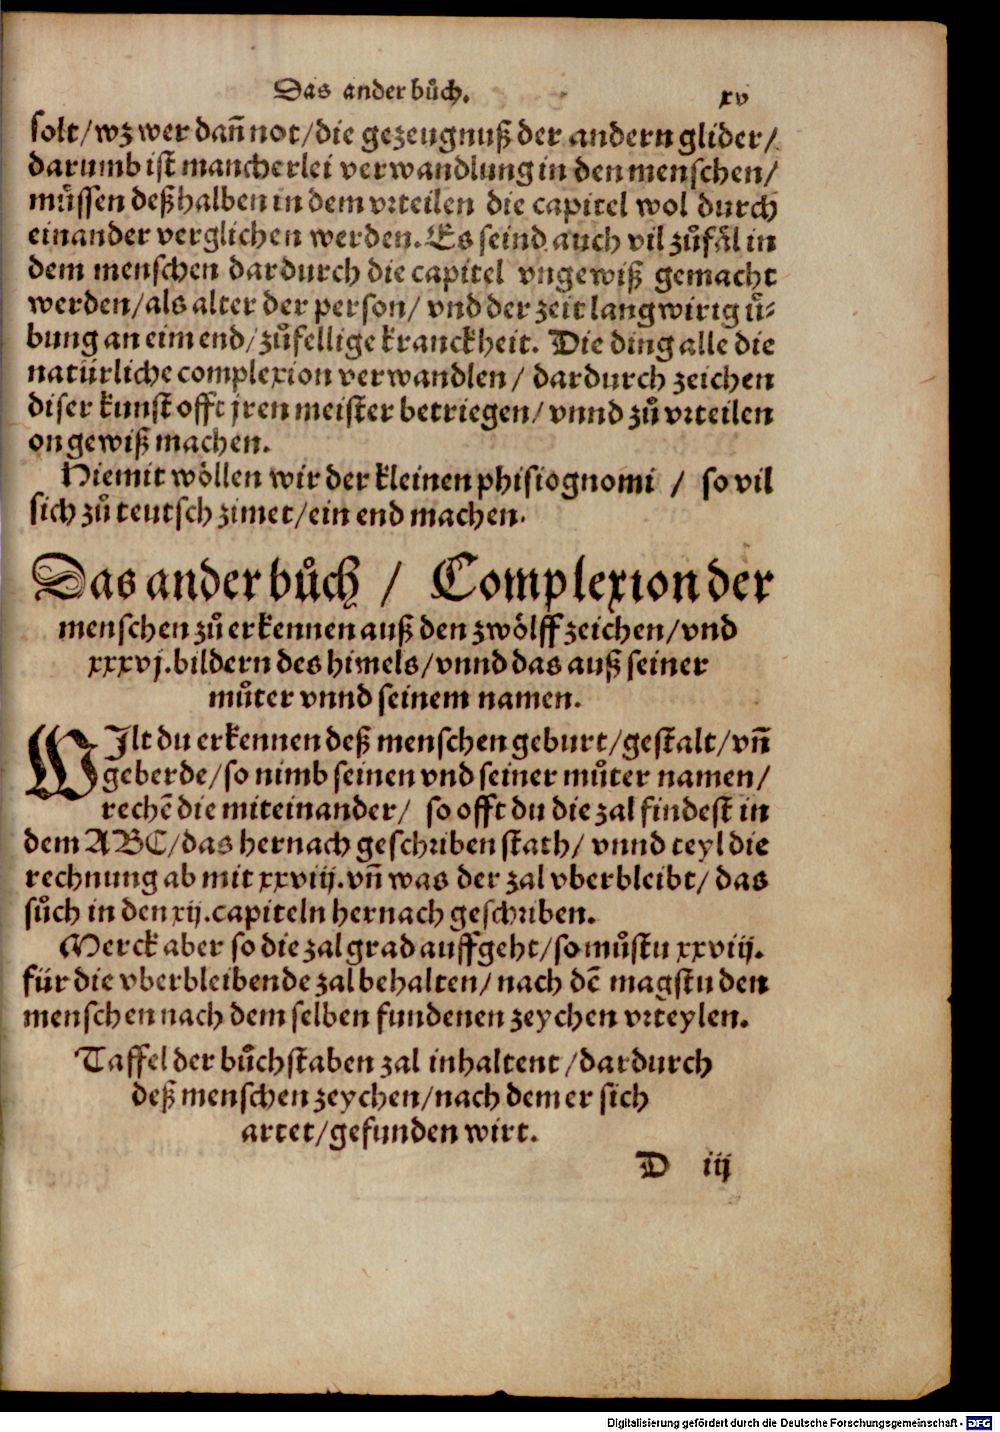 Das ander bůch. xv
solt/wz wer dañ not/die gezeugnuß der andern glider/
darumb ist mancherlei verwandlung in den menschen/
müssen deßhalben in dem vrteilen die capitel wol durch
einander verglichen werden. Es seind auch vil zůfäl in
dem menschen dardurch die capitel vngewiß gemacht
werden/als alter der person/ vnd der zeit langwirig ü-
bung an eim end/zůfellige kranckheit. Die ding alle die
natürliche complexion verwandlen/ dardurch zeichen
diser kunst offt jren meister betriegen/vnnd zů vrteilen
on gewiß machen.
Hiemit wöllen wir der kleinen phisiognomi / so vil
sich zů teutsch zimet/ein end machen.
Das ander bůch / Complexion der
menschen zů erkennen auß den zwölff zeichen/vnd
xxxvj.bildern des himels/vnnd das auß seiner
můter vnnd seinem namen.
WIlt du erkennen deß menschen geburt/gestalt/vñ
geberde/so nimb seinen vnd seiner můter namen/
rechē die miteinander/ so offt du die zal findest in
dem ABC/das hernach geschriben stath/ vnnd teyl die
rechnung ab mit xxviij.vñ was der zal vberbleibt/ das
sůch in den xij.capiteln hernach geschriben.
Merck aber so die zal grad auffgeht/so můstu xxviij.
für die vberbleibende zal behalten/nach dē magstu den
menschen nach dem selben fundenen zeychen vrteylen.
Taffel der bůchstaben zal inhaltent/dardurch
deß menschen zeychen/nach dem er sich
artet/gefunden wirt.
D iij
Digitalisierung gefördert durch die Deutsche Forschungsgemeinschaft - DFG